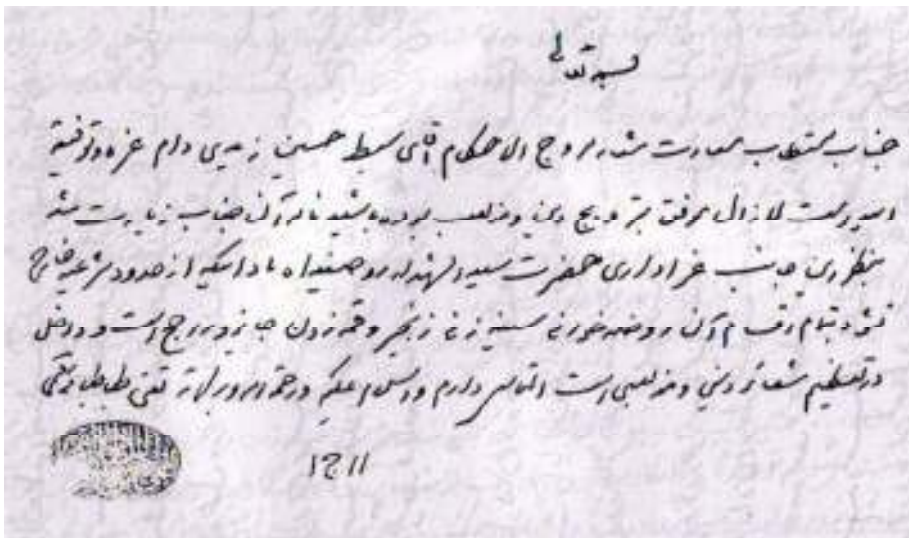 بسمه تعالی
جناب مستطاب شریعتمدار مروج الاحکام آقای سبط حسین زیدی دام عزه وتوفیقه
امید است لازال موفق بترویج دین ومذهب بوده باشید نامه آن جناب زیارت شد
بنظر این جانب عزاداری حضرت سید الشهداء روحی فداه مادامیکه از حدود شرعیه خارج
نشود بتمام اقسام آن روضه خوانی سینه زنی زنجیر وقمه زدن جایز وراجح است وداخل
در تعظیم شعائر دینی ومذهبی است التماس دعا دارم والسلام علیکم ورحمة الله وبرکاته تقی طباطبائی قمی
ج۱۱ ۱